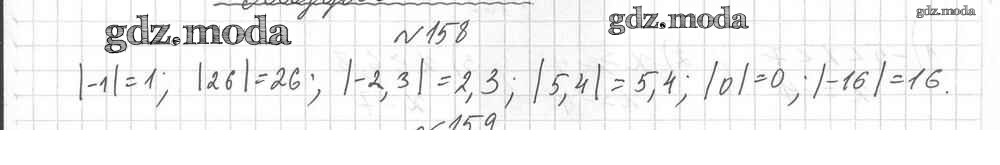 gdz.moda gdz.moda gdz.moda
№158
|-1|=1; |26|=26; |-2,3|=2,3; |5,4|=5,4; |0|=0; |-16|=16.
№159